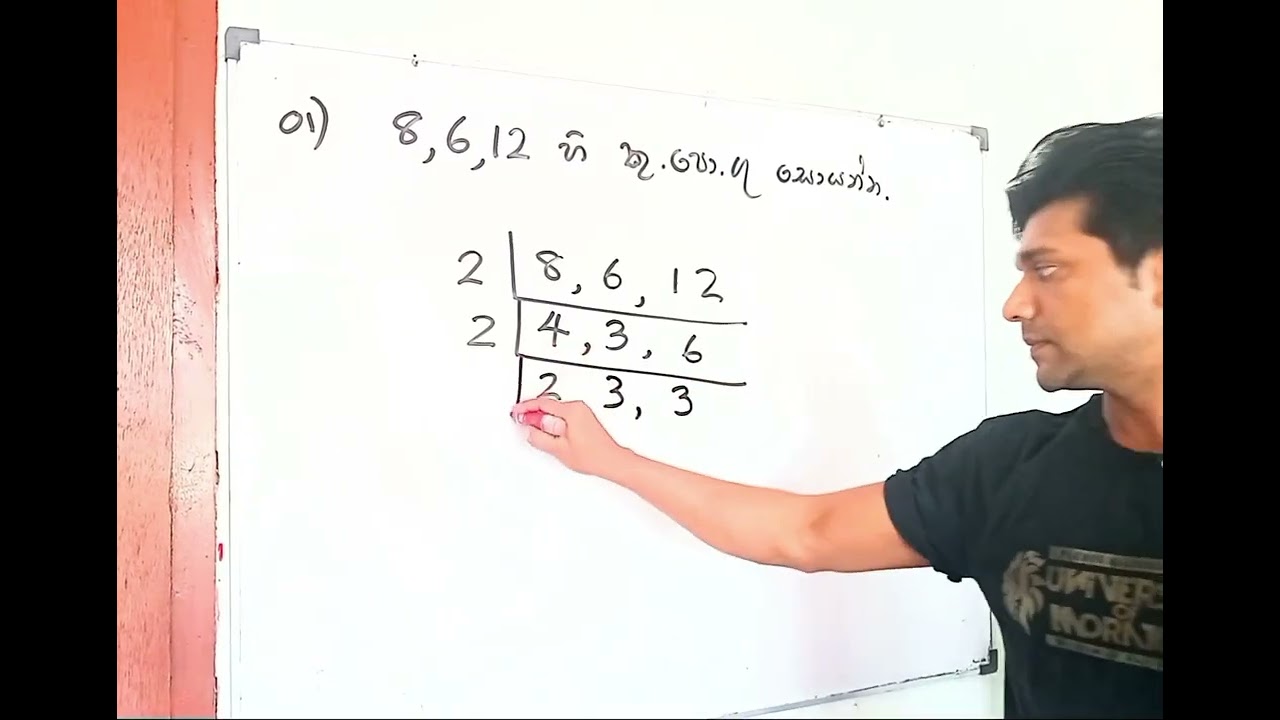 01) 8, 6, 12 හි කු.පො.ගු සොයන්න.
2 | 8, 6, 12
2 | 4, 3, 6
2 3, 3
UNIVERS
OF
MORAT